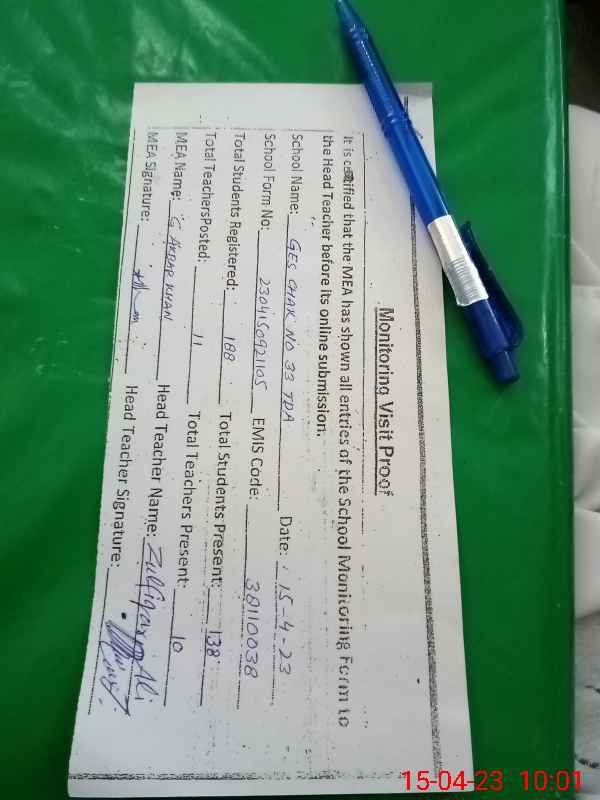 Monitoring Visit Proof
It is certified that the MEA has shown all entries of the School Monitoring Form to
the Head Teacher before its online submission.
School Name: GES CHAK NO 33 TDA Date: 15-4-23
School Form No: 2304150921105 EMIS Code: 38110038
Total Students Registered: 188 Total Students Present: 138
Total TeachersPosted: 11 Total Teachers Present: 10
MEA Name: G AKBAR KHAN Head Teacher Name: Zulfiqar Ali
MEA Signature: Head Teacher Signature:
15-04-23 10:01